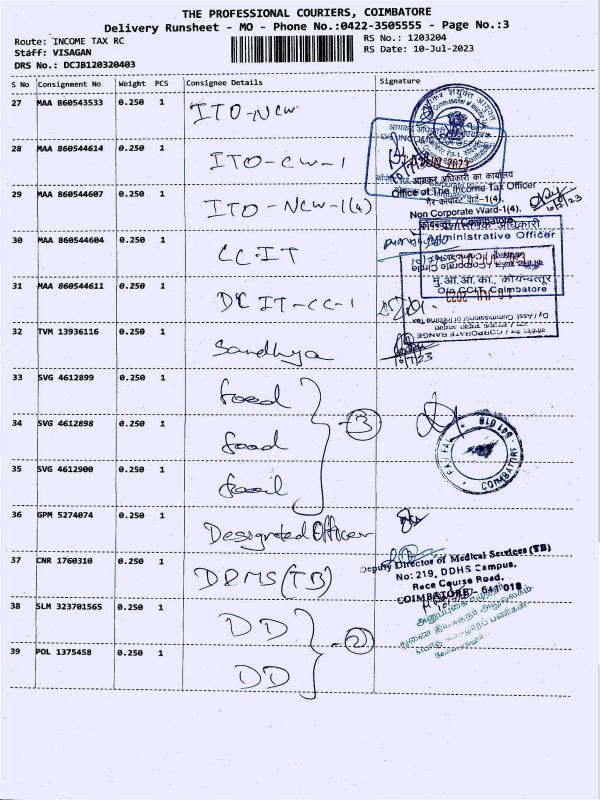 THE PROFESSIONAL COURIERS, COIMBATORE
Delivery Runsheet - MO - Phone No.:0422-3505555 - Page No.:3
Route: INCOME TAX RC
Staff: VISAGAN
DRS No.: DCJB120320403
RS No.: 1203204
RS Date: 10-Jul-2023
S No Consignment No Weight PCS Consignee Details Signature
27 MAA 860543533 0.250 1 ITO-NCW
28 MAA 860544614 0.250 1 ITO-CW-1
29 MAA 860544607 0.250 1 ITO-NCW-1(4)
आयकर अधिकारी का कार्यालय
Office of The Income Tax Officer
Non Corporate Ward-1(4),
Coimbatore
10/7/23
30 MAA 860544604 0.250 1 CCIT
Administrative Officer
मु.आ.आ.का., कोयम्बत्तूर
O/o CCIT, Coimbatore
31 MAA 860544611 0.250 1 DCIT-CC-1
CORPORATE RANGE
32 TVM 13936116 0.250 1 Sandhya
10/7/23
33 SVG 4612899 0.250 1 food
34 SVG 4612898 0.250 1 food
-3
COIMBATORE
641 018
35 SVG 4612900 0.250 1
36 GPM 5274074 0.250 1 Designated Officer
37 CNR 1760310 0.250 1 DDMS (TB)
Deputy Director of Medical Services (TB)
No: 219, DDHS Campus,
Race Course Road,
COIMBATORE - 641 018
38 SLM 323701565 0.250 1 DD
-2
39 POL 1375458 0.250 1 DD